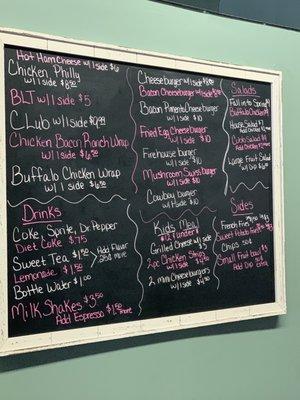 Hot Ham & Cheese w/ 1 side $6
Chicken Philly
w/ 1 side $8.50
BLT w/ 1 side $5
Club w/ 1 side
Chicken Bacon Ranch Wrap
w/ 1 side $6.50
Buffalo Chicken Wrap
w/ 1 side
Drinks
Coke, Sprite, Dr. Pepper
Diet Coke $.75
Sweet Tea $1.50
Lemonade $1.50
Add Flavor
more
Bottle Water $1.00
Milk Shakes $3.50
Add Espresso $1.50 more
Cheeseburger w/ 1 side
Bacon Cheeseburger w/ 1 side
Bacon Pimento Cheese burger
w/ 1 side $10
Fried Egg Cheese burger
w/ 1 side $10
Firehouse burger
w/ 1 side $10
Mushroom Swiss burger
w/ 1 side $10
Cowboy burger
w/ 1 side $10
Kids Menu
12 & under
Grilled Cheese w/ 1 side
2pc Chicken Strips
w/ 1 side
2 mini Cheese burgers
w/ 1 side
Salads
Fall in to Spring
Buffalo Chicken
House Salad
Add Chicken
Cobb Salad
Add Chicken
Large Fruit Salad
w/ Dip
Sides
French Fries
Sweet Potato Fries
Chips
Small Fruit bowl
Add Dip